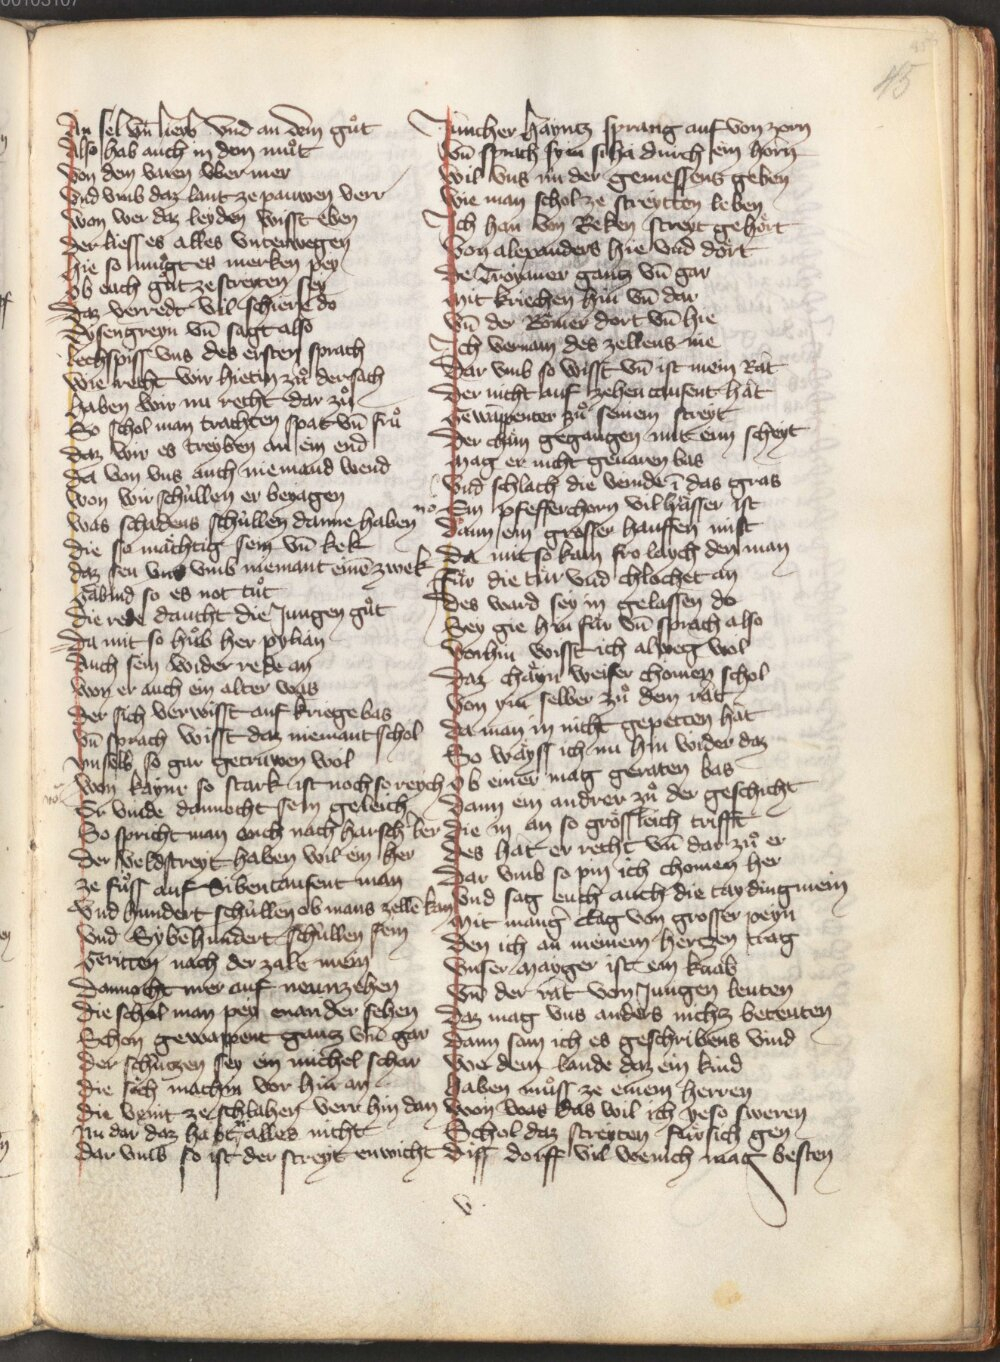 45
An sel vn̄ lieyb vnd an dem gůt
Also hab auch in dem můt
Von dem varen vber mer
Vnd vmb daz lant ze pauwen verr
Won wer daz leyden wisst eben
Der liess es alles vnterwegen
Hie so mügt es merken pey
Ob euch gůt ze streiten sey
Daz verredt vil schiere do
Eysengreyn vn̄ sagt also
Lechspiss vns des ersten sprach
Wie recht wir hietin zů der sach
Haben wir nu recht dar zů
So schol man trachten spat vn̄ frů
Daz wir es treyben an ein end
Da von vns auch niemand wend
Won wir schüllen er beiagen
Was schadens schüllen danne haben
Die so mächtig sein vn̄ kek
Daz seu vns vmb niemant eine zwek
Gäbind so es not tůt
Die rede daucht die Jungen gůt
Da mit so hůb her pylian
Auch sein wider rede an
Won er auch ein alter was
Der sich verwisst auf kriege bas
Vn̄ sprach wisst daz niemant schol
Im selb so gar getruwen wol
Won kayner so stark ist noch so reych
Er vinde dannocht sein geleich
So spricht man ouch nach harsch ler
Der veldstreyt haben wil ein her
Ze fůss auf Sibentausent man
Vnd hundert schüllen ob mans zelle kan
Vnd Sybēhundert schüllen sein
Geritten nach der zale mein
Dannocht mer auf neunzehen
Die schol man pey enander sehen
Schon gewappent gantz vn̄ gar
Der schützen sey ein michel schar
Die sich machin vor hin an
Die veint ze schlahen verr hin dan
Nu dar daz habt alles nicht
Dar vmb so ist der streyt enwicht
Juncher Hayntz sprang auf von zorn
Vn̄ sprach sym siha durch ein horn
Wil vns nu der gemessens geben
Wie man schol ze streytten leben
Ich han von Reken streyt gehört
Von alexanders hie vnd dört
De Troyaner gantz vn̄ gar
Mit kriechen hin vn̄ dar
Vn̄ der Römer dort vn̄ hie
Ich vernam des zellens nie
Dar vmb so wisst vn̄ ist mein Rat
Der nicht auf zehen tausent hat
Gewappenter zů seinem streyt
Der chüm gegangen mit eim scheyt
Mag er nicht geuaren bas
Vnd schlach die veinde ī das gras
Ein pfefferchorn vil hässer ist
Dann ein grosser hauffen mist
Da mit so kam fro laych den man
Für die tür vnd chlochet an
Des ward sey in gelassen do
Sey gie hin für vn̄ sprach also
Vorhin wisst ich alweg wol
Daz chayn weiser chomen schol
Von ym selber zů dem rat
Da man in nicht gepetten hat
So wayss ich nu hin wider daz
Ob einer mag geraten bas
Dann ein andrer zů der geschicht
Die in an so grössleich trifft
Des hat er recht vn̄ dar zů er
Dar vmb so pin ich chomen her
Vnd sag euch auch die tayding mein
Mit mang̉ clag von grosser peyn
Den ich an meinem hertzen trag
Vnser mayger ist ein knab
Vn̄ der rat von Jungen leuten
Daz mag vns anders nichtz beteuten
Dann sam ich es geschribens vind
We dem lande daz ein kind
Haben můss ze einem herren
Won was das wil ich yeso sweren
Schol daz streyten für sich gen
Diss dorff vil wenich mag besten